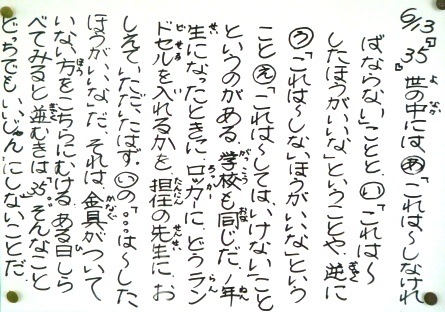 6/13 「35」 世の中には、あ「これは〜しなけれ
ばならない」ことと、い「これは〜
したほうがいいな」ということや、逆に
う「これは〜しないほうがいいな」という
こと え「これは〜しては、いけない」こと
というのがある。学校も同じだ。1年
生になったときに、ロッカーに、どうラン
ドセルを入れるかを、担任の先生に、お
しえて、いただいたはず。いの「…は〜した
ほうがいいな」だ。それは、金具がついて
いない方をこちらにむける。ある日しら
べてみると逆むきは そんなこと
どっちでもいいじゃん、にしないことだ。